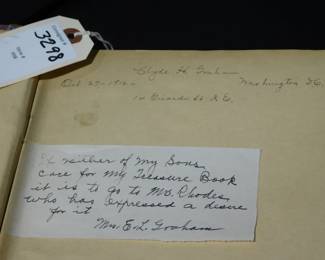 3298
Clyde H. Graham
Oct 29-1912- Washington D.C.
14 Girard St N.E.
If neither of my Sons
care for my Treasure Book
it is to go to Mr. Rhodes
who has expressed a desire
for it
Mrs. E. L. Graham